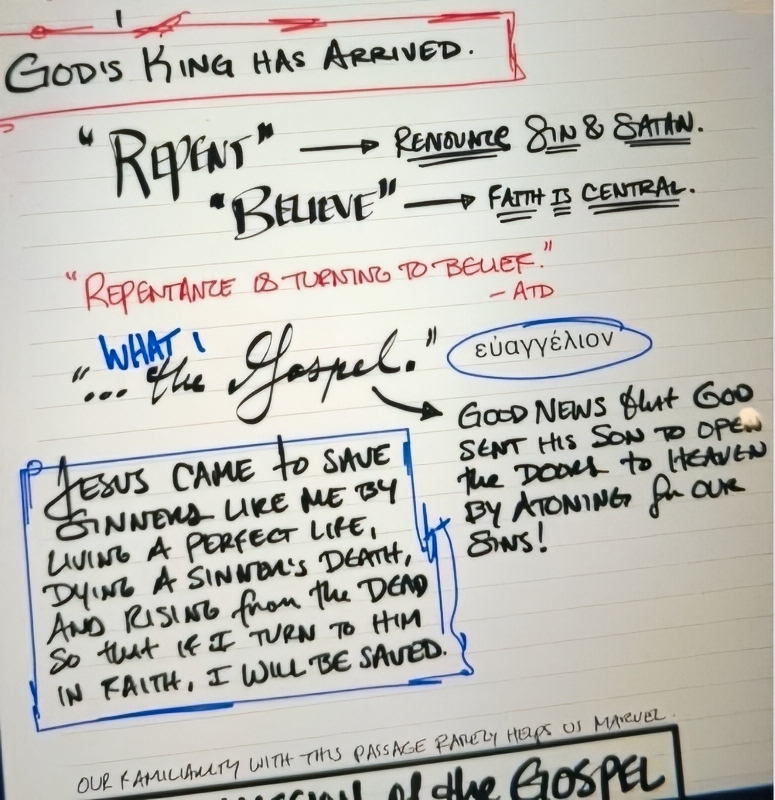 GOD'S KING HAS ARRIVED.
"REPENT" → RENOUNCE SIN & SATAN.
"BELIEVE" → FAITH IS CENTRAL.
"REPENTANCE IS TURNING TO BELIEF."
- ATD
WHAT
"... the Gospel." εὐαγγέλιον
GOOD NEWS that GOD
SENT HIS SON TO OPEN
the DOORS to HEAVEN
BY ATONING for OUR
SINS!
JESUS CAME to SAVE
SINNERS LIKE ME BY
LIVING A PERFECT LIFE,
DYING A SINNER'S DEATH,
AND RISING from the DEAD
So that if I TURN TO HIM
IN FAITH, I WILL BE SAVED.
OUR FAMILIARITY WITH THIS PASSAGE RARELY HELPS US MARVEL.
of the GOSPEL